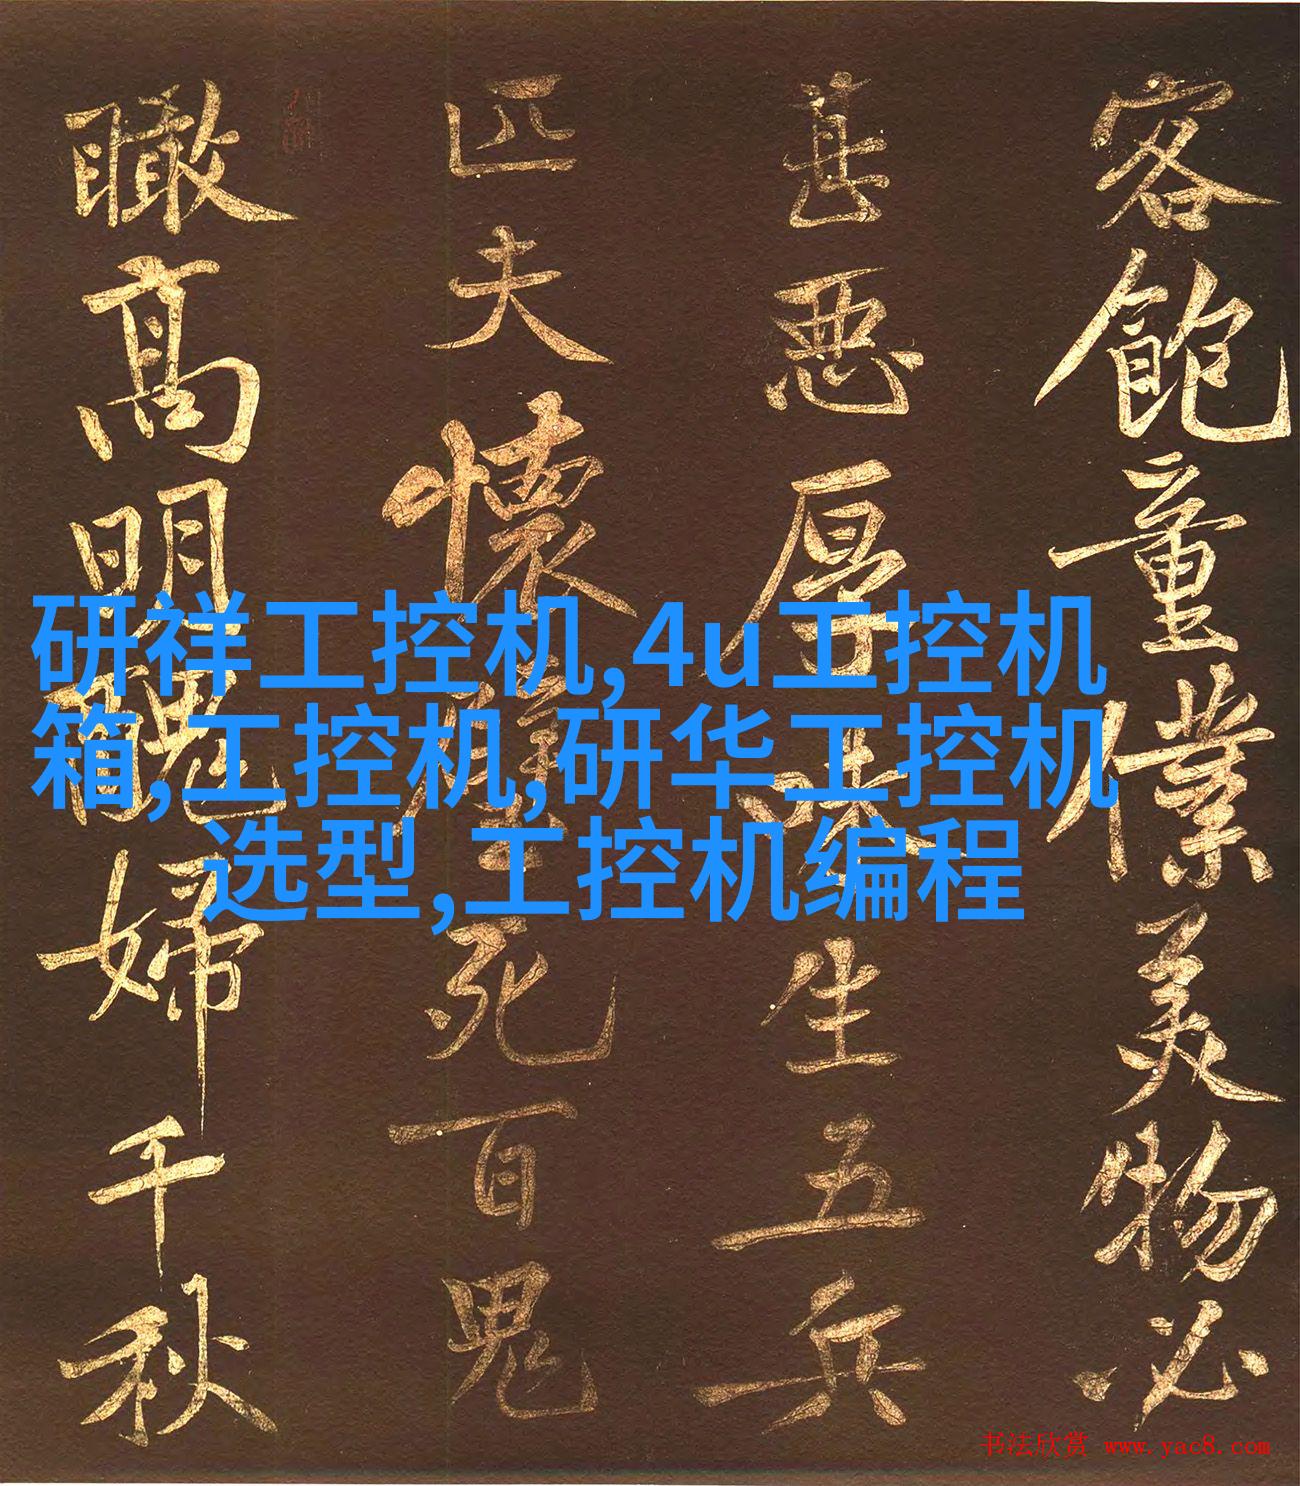 客飽童僕美物必
甚悪厚味生五兵
匹夫懷璧死百鬼
瞰高明醜婦千秋
研祥工控机,4u工控机
箱,工控机,研华工控机
选型,工控机编程
书法欣赏 www.yac8.com